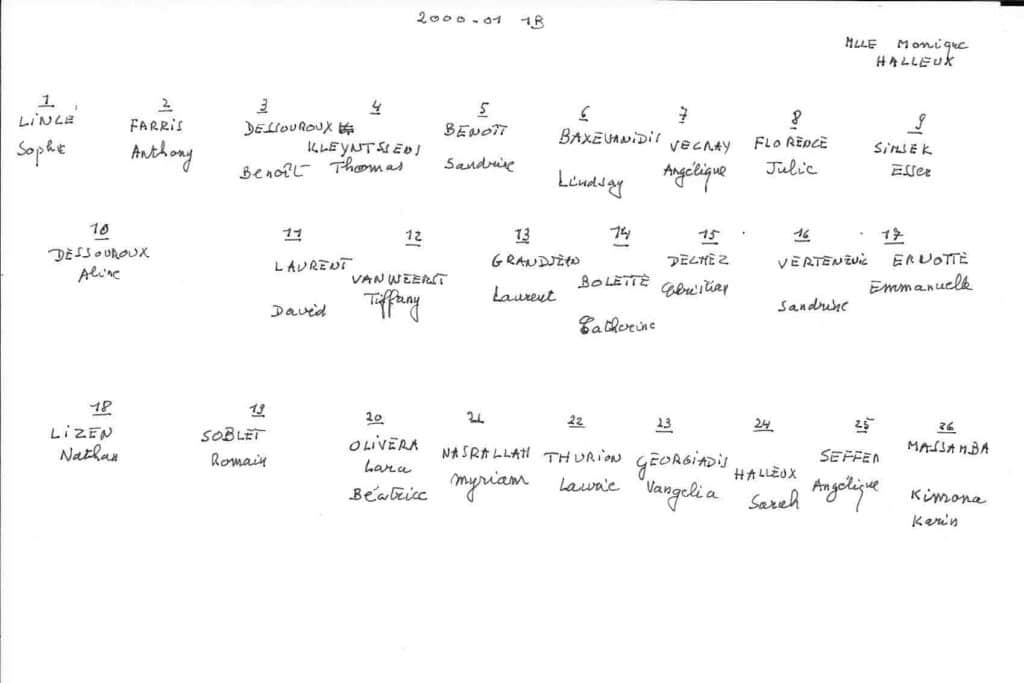 2000-01 1B
MLLE Monique
HALLEUX
1 2 3 4 5 6 7 8 9
LINCÉ FARRIS DESSOUROUX KLEYNTSSENS BENOIT BAXEVANIDIS VECRAY FLORENCE SIMSEK
Sophie Anthony Benoît Thomas Sandrine Lindsay Angélique Julie Esser
10 11 12 13 14 15 16 17
DESSOUROUX LAURENT VANWEERST GRANDJEAN BOLETTE DELMEZ ERNOTTE
Aline David Tiffany Laurent Catherine Christian Sandrine Emmanuelle
18 19 20 21 22 23 24 25 26
LIZEN SOBLET OLIVERA NASRALLAH THURION GEORGIADIS HALLEUX SEFFER MASSAMBA
Nathan Romain Lara Myriam Laurie Vangelia Sarah Angélique Kimona
Béatrice Karin